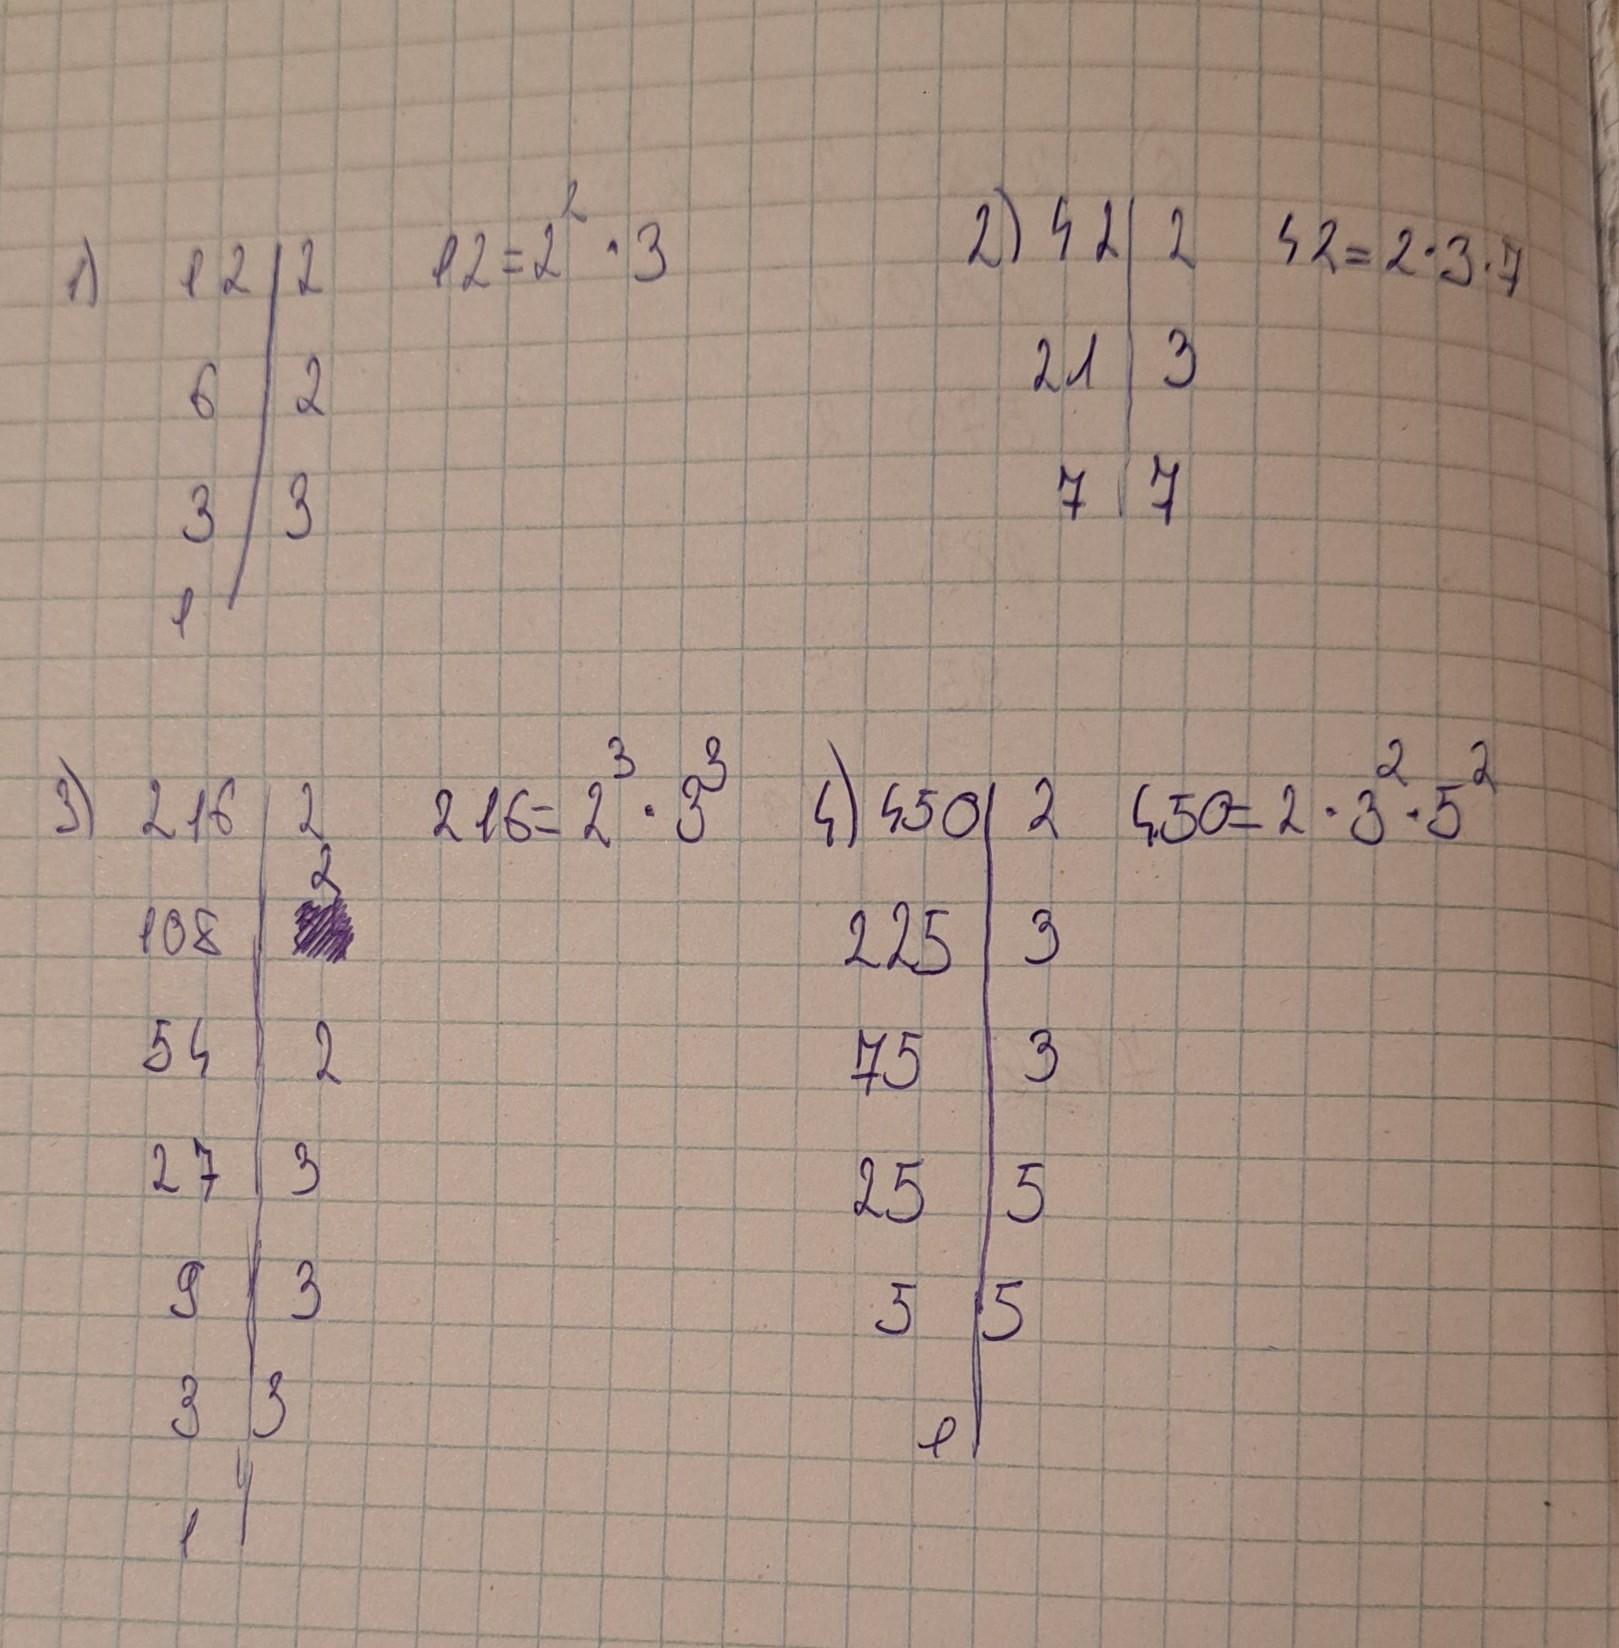 1) 12 | 2   12 = 2² · 3
6 | 2
3 | 3
1
2) 42 | 2   42 = 2 · 3 · 7
21 | 3
7 | 7
3) 216 | 2   216 = 2³ · 3³
108 | 2
54 | 2
27 | 3
9 | 3
3 | 3
1
4) 450 | 2   450 = 2 · 3² · 5²
225 | 3
75 | 3
25 | 5
5 | 5
1